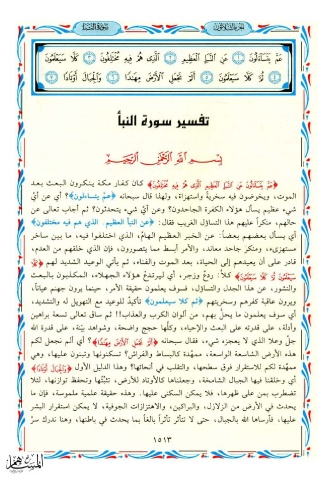 الجزء الثلاثون
سورة النبأ
عَمَّ يَتَسَاءَلُونَ ۝١ عَنِ النَّبَإِ الْعَظِيمِ ۝٢ الَّذِي هُمْ فِيهِ مُخْتَلِفُونَ ۝٣ كَلَّا سَيَعْلَمُونَ
۝٤ ثُمَّ كَلَّا سَيَعْلَمُونَ ۝٥ أَلَمْ نَجْعَلِ الْأَرْضَ مِهَادًا ۝٦ وَالْجِبَالَ أَوْتَادًا ۝٧
تفسير سورة النبأ
بِسْمِ اللَّهِ الرَّحْمَٰنِ الرَّحِيمِ
﴿عَمَّ يَتَسَاءَلُونَ عَنِ النَّبَإِ الْعَظِيمِ الَّذِي هُمْ فِيهِ مُخْتَلِفُونَ﴾ كان كفار مكة ينكرون البعث بعد
الموت، ويخوضون فيه سخرية واستهزاء، ولهذا قال سبحانه ﴿عمَّ يتساءلون﴾؟ أي عن أيِّ
شيء عظيم يسأل هؤلاء الكفرة الجاحدون؟ وعن أيِّ شيء يتحدثون؟ ثم أجاب تعالى عن
حالهم، منكراً عليهم هذا التساؤل الغريب فقال: ﴿عن النبأ العظيم الذي هم فيه مختلفون﴾
أي يسأل بعضهم بعضاً: عن الخبر العظيم الهامِّ، الذي اختلفوا فيه، ما بين ساخر
مستهزىء، ومنكر جاحد معاند، والأمر أبسط مما يتصورون، فإن الذي خلقهم من العدم،
قادر على أن يعيدهم إلى الحياة، بعد الموت والفناء، ثم يأتي الوعيد الشديد لهم ﴿كَلَّا
سَيَعْلَمُونَ ثُمَّ كَلَّا سَيَعْلَمُونَ﴾ كلاَّ: ردعٌ وزجر، أي ليرتدعْ هؤلاء الجهلاء، المكذبون بالبعث
والنشور، عن هذا الجدل والتساؤل، فسوف يعلمون حقيقة الأمر، حينما يرون جهنم عياناً،
ويرون عاقبة كفرهم وسخريتهم ﴿ثم كلا سيعلمون﴾ تأكيدٌ للوعيد مع التهويل له والتشديد،
أي سوف يعلمون ما يحلُّ بهم، من ألوان الكرب والعذاب!! ثم ساق تعالى تسعة براهين
وأدلة، على قدرته على البعث والإحياء، وكلُّها حجج واضحة، وشواهد بيّنة، على قدرة الله
جلَّ وعلا الذي لا يعجزه شيء، فقال سبحانه ﴿أَلَمْ نَجْعَلِ الْأَرْضَ مِهَادًا﴾؟ أي ألم نجعل لكم
هذه الأرض الشاسعة الواسعة، ممهَّدة كالبساط والفراش؟ تسكنونها وتبنون عليها، وهي
ممهَّدة لكم للاستقرار فوق سطحها، والتقلب في أنحائها؟ وهذا الدليل الأول ﴿وَالْجِبَالَ أَوْتَادًا﴾
أي وخلقنا فيها الجبال الشامخة، وجعلناها كالأوتاد للأرض، تثبّتُها وتحفظ توازنها، لئلا
تضطرب بمن على ظهرها، فلا يمكن السكنى عليها. وهذه حقيقة علمية ملموسة، فإن ما
يحدث في الأرض من الزلازل، والبراكين، والاهتزازات الجوفية، لا يمكن استقرار البشر
عليها، فأرساها الله بالجبال، حتى لا تتأثر تأثراً بالغاً بما يحدث في باطنها، وهنا ندرك سرَّ
١٥١٣